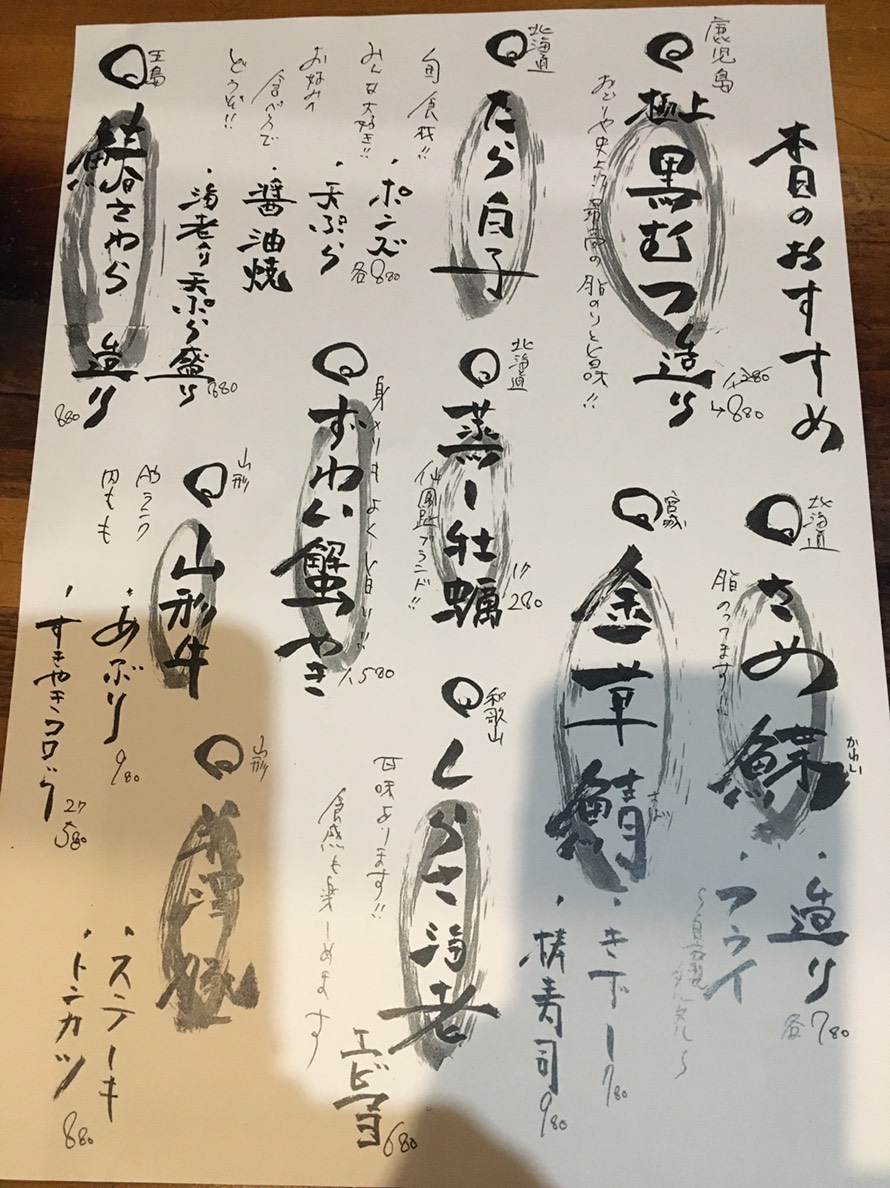 本日のおすすめ
鹿児島
極上 黒むつ 造り
1,280
↳880
おどりや史上!! 最高の脂のりと旨味!!
北海道
たら白子
旬食材!!
みんな大好き!!
お好みの
食べ方で
どうぞ!!
・ポンズ
各880
・天ぷら
・醤油焼
・海老入り天ぷら盛り
880
さわら 造り
880
北海道
さめ鰈
かれい
脂のってます!!
・造り
各780
・フライ
宮城
金華鯖
さば
・きずし
780
・棒寿司
980
北海道
蒸し牡蠣
1ケ
280
仙鳳趾ブランド!!
ずわい蟹やき
1,580
身入りもよく旨い!!
和歌山
くらさ海老
甘味あります!!
食感も楽しめます
エビマヨ
680
山形
山形牛
A5ランク
内もも
・あぶり
980
・すきやきコロッケ
2ケ
580
山形
・ステーキ
・トンカツ
880